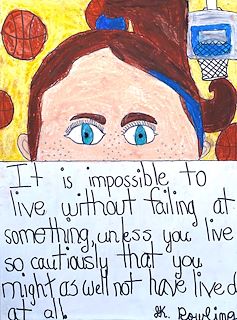 It is impossible to
live without failing at
something, unless you live
so cautiously that you
might as well not have lived
at all.
JK. Rowling